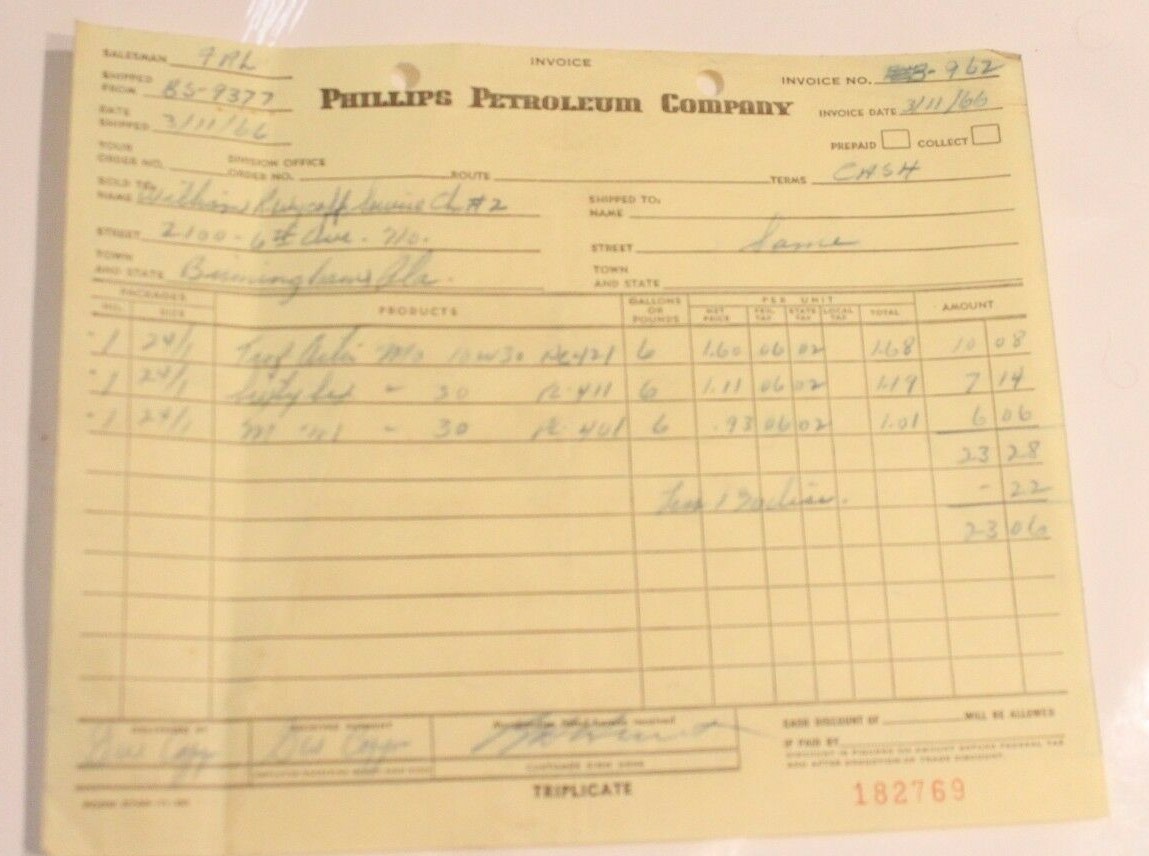 INVOICE
SALESMAN
INVOICE NO. B-962
SHIPPED FROM BS-9377
PHILLIPS PETROLEUM COMPANY
INVOICE DATE 3/11/66
DATE SHIPPED 3/11/66
PREPAID COLLECT
YOUR ORDER NO. DIVISION OFFICE ORDER NO. ROUTE TERMS CASH
SOLD TO: NAME William #2 SHIPPED TO: NAME
STREET 2100 - 6th Ave. No. STREET Same
TOWN AND STATE Birmingham, Ala. TOWN AND STATE
PACKAGES PRODUCTS GALLONS OR POUNDS PER UNIT AMOUNT
NO. SIZE NET PRICE FED. TAX STATE TAX LOCAL TAX TOTAL
1 24/1 Trop Artic Mo 10W30 6 1.60 06 02 1.68 10 08
1 24/1 Sixty Six " 30 6 1.11 06 02 1.19 7 14
1 24/1 " 30 6 .93 06 02 1.01 6 06
23 28
- 22
23 06
CASH DISCOUNT OF WILL BE ALLOWED
IF PAID BY
DISCOUNT IS FIGURED ON AMOUNT BEFORE FEDERAL TAX
AND AFTER DEDUCTION OF TRADE DISCOUNT
CUSTOMER SIGN HERE
TRIPLICATE
182769